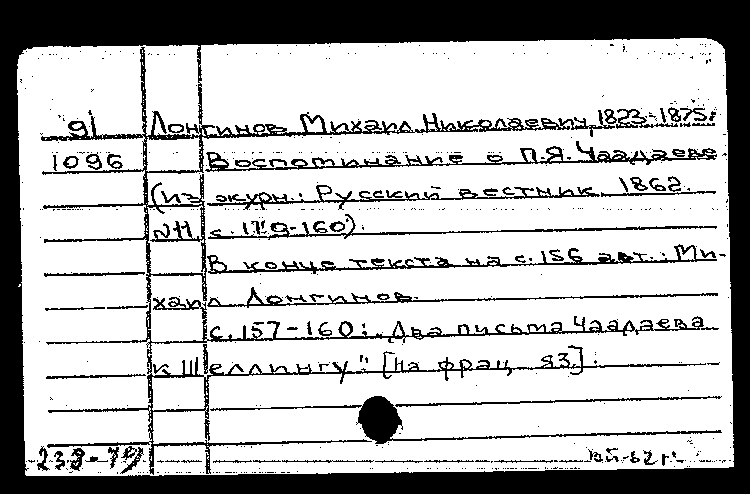 91 Лонгинов Михаил Николаевич, 1823-1875.
1096 Воспоминание о П.Я. Чаадаеве
(Из журн.: Русский вестник, 1862.
N11, с. 119-160).
В конце текста на с. 156 авт.: Ми-
хаил Лонгинов.
с. 157-160: "Два письма Чаадаева
к Шеллингу". [На франц. яз].
238-79 62 г.